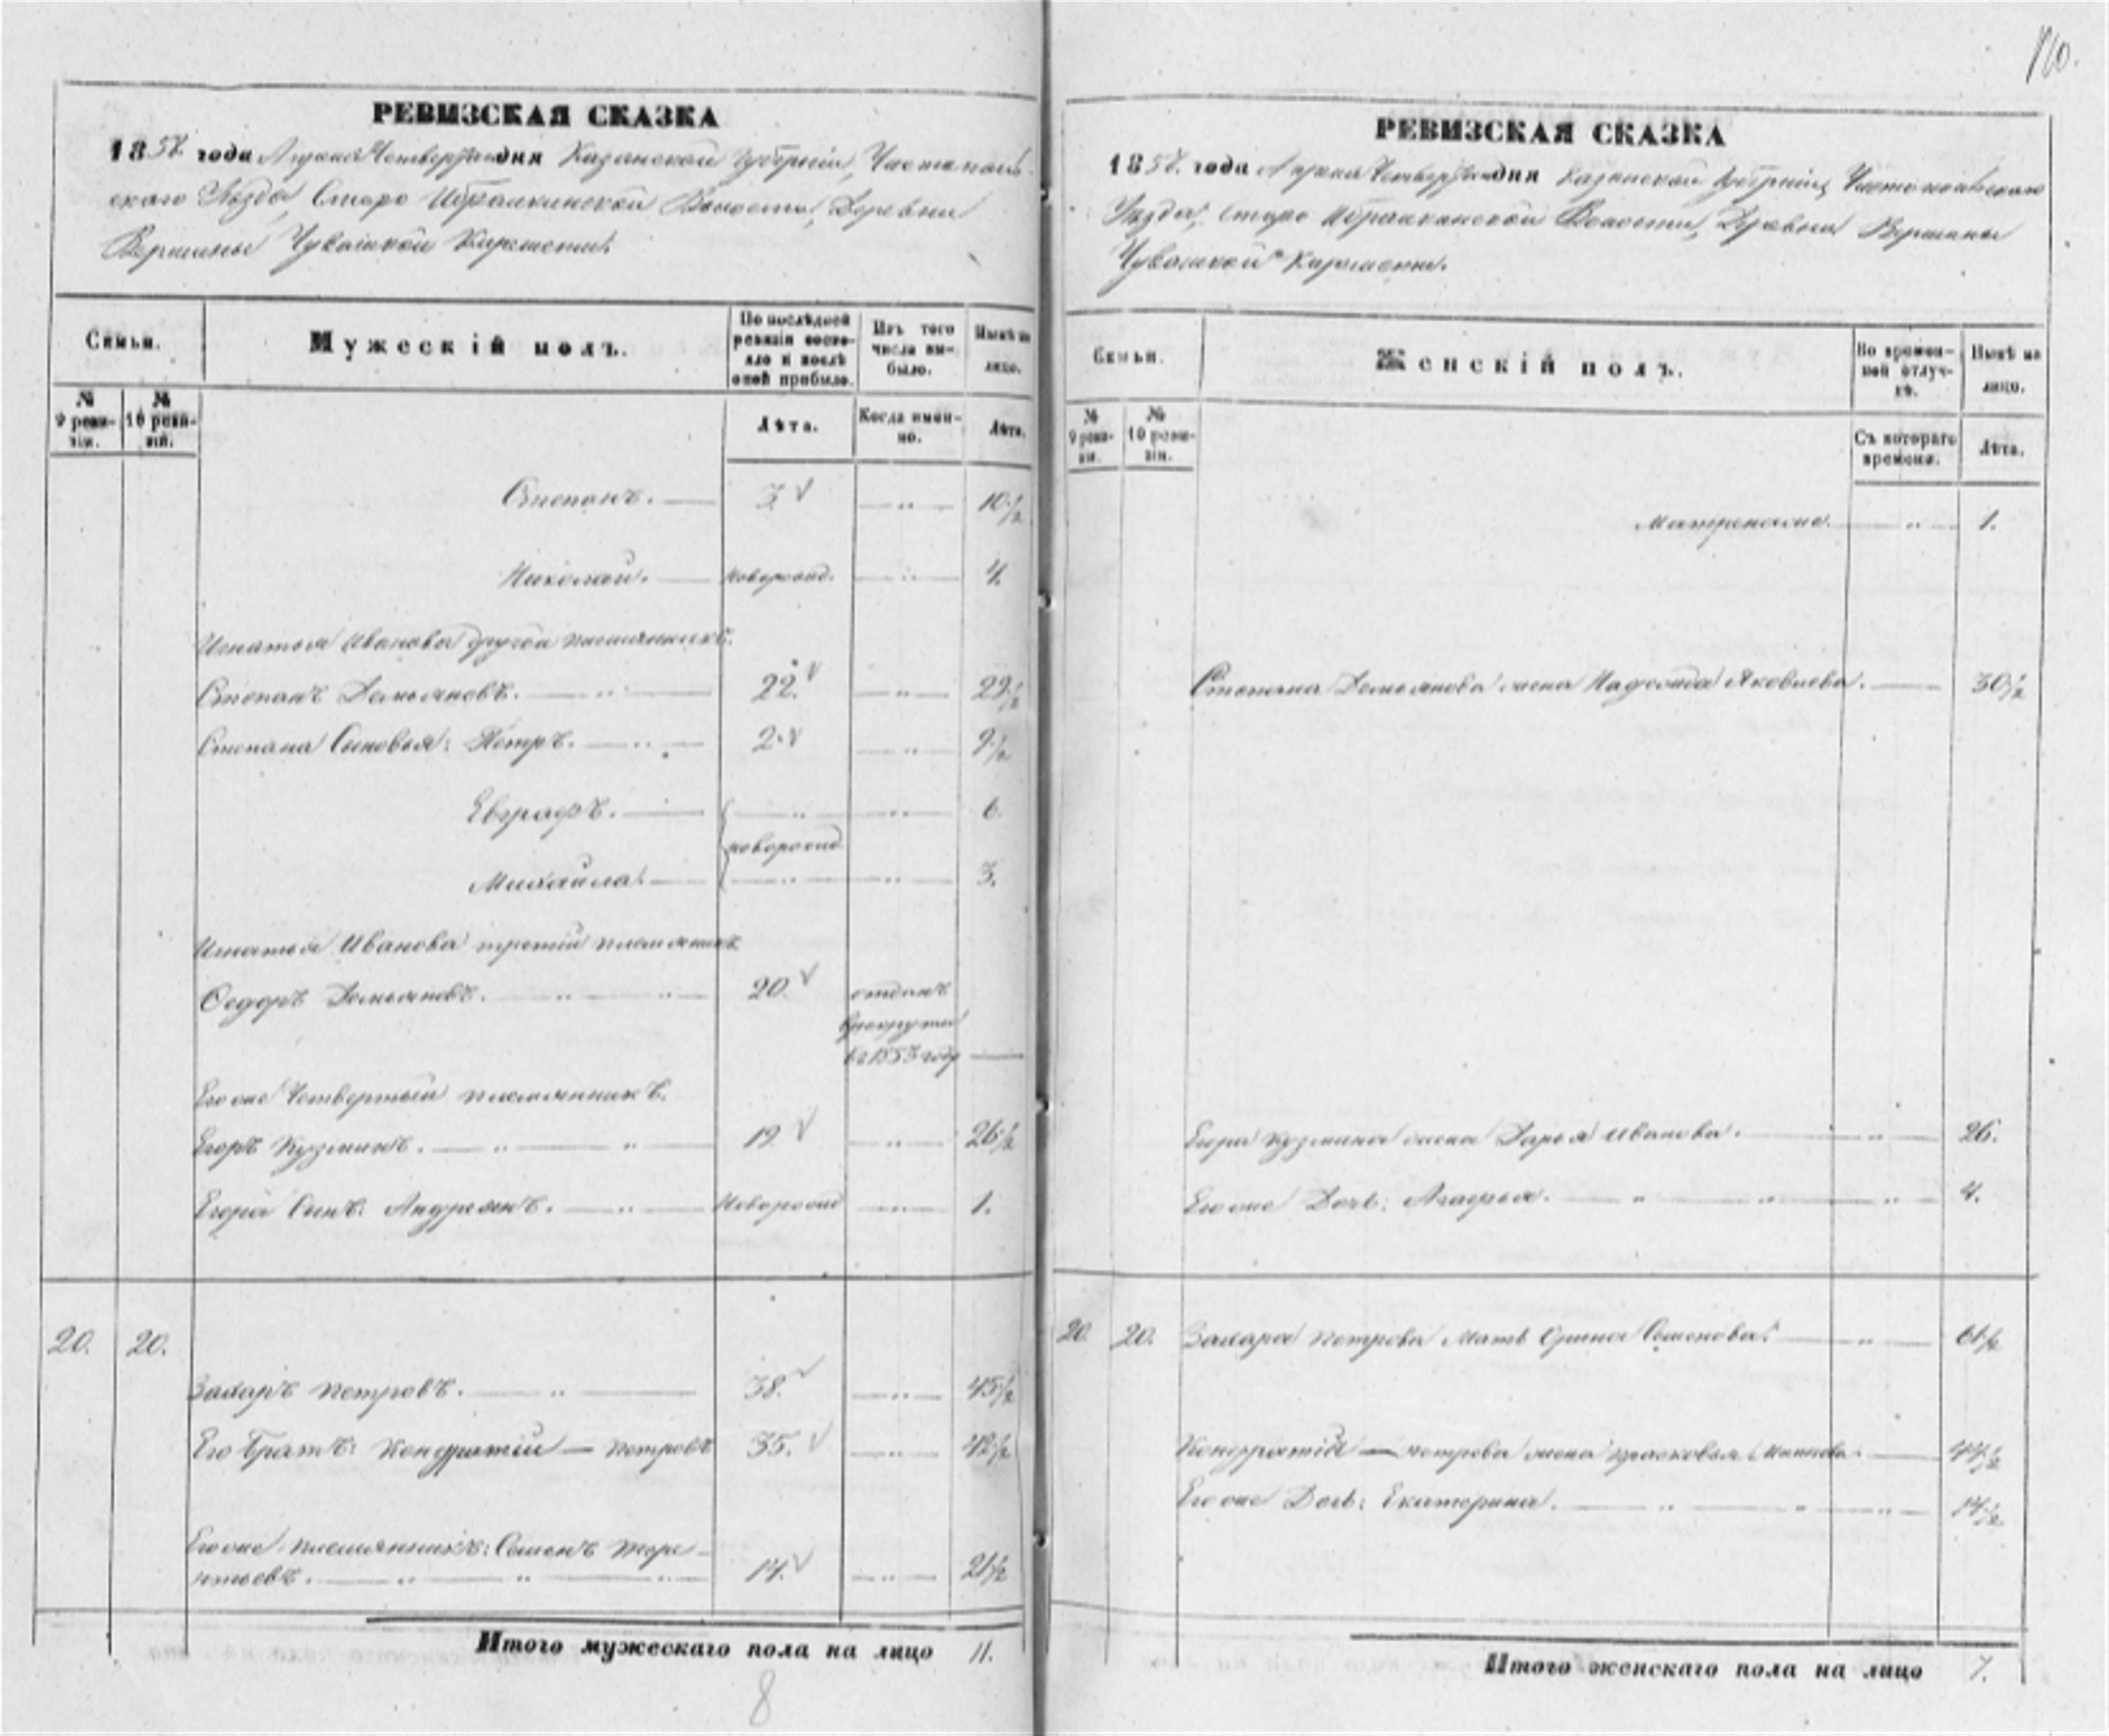 РЕВИЗСКАЯ СКАЗКА
1858 года Апреля Четвертаго дня Казанской Губерніи, Чистополь-
скаго Уѣзда, Старо Ибрайкинской Волости, Деревни
Вершины Чувашской Киремети.
Семьи.
Мужескій полъ.
По послѣдней ревизіи состояло и послѣ оной прибыло.
Изъ того числа выбыло.
Нынѣ на лицо.
№ 9 ревизіи.
№ 10 ревизіи.
Лѣта.
Когда именно.
Лѣта.
Степанъ. 3 10 1/2
Николай. новорожд. 4.
Игнатья Иванова другой племянникъ.
Степанъ Демьяновъ. 22. 29 1/2
Степана Сыновья: Петръ. 2. 9 1/2
Евграфъ. 6.
новорожд.
Михайла. 3.
Игнатья Иванова третій племянникъ
Ѳедоръ Демьяновъ. 20. отданъ
в рекруты
въ 1855 году
Его же Четвертый племянникъ.
Егоръ Кузминъ. 19. 26 1/2
Егора Сынъ: Андреянъ. Новорожд 1.
20. 20.
Захаръ Петровъ. 38. 45 1/2
Его Братъ: Кондратій — Петровъ 35. 42 1/2
Его же племянникъ: Семенъ Тере-
нтьевъ. 14. 21 1/2
Итого мужескаго пола на лицо 11.
8
160.
РЕВИЗСКАЯ СКАЗКА
1858. года Апреля Четвертаго дня Казанской Губерніи, Чистопольскаго
Уѣзда, Старо Ибрайкинской Волости, Деревни Вершины
Чувашской Киремети.
Семьи.
Женскій полъ.
Во временной отлучкѣ.
Нынѣ на лицо.
№ 9 ревизіи.
№ 10 ревизіи.
Съ котораго времени.
Лѣта.
1.
Степана Демьянова жена Надежда Яковлева. 30 1/2
Егора Кузмина жена Дарья Иванова. 26.
Его же Дочь: Агафья. 4.
20. 20. Захара Петрова Мать Орина Семенова. 61 1/2
Кондратія — петрова жена Прасковья 44 1/2
Его же Дочь: Екатерина. 14 1/2
Итого женскаго пола на лицо 7.